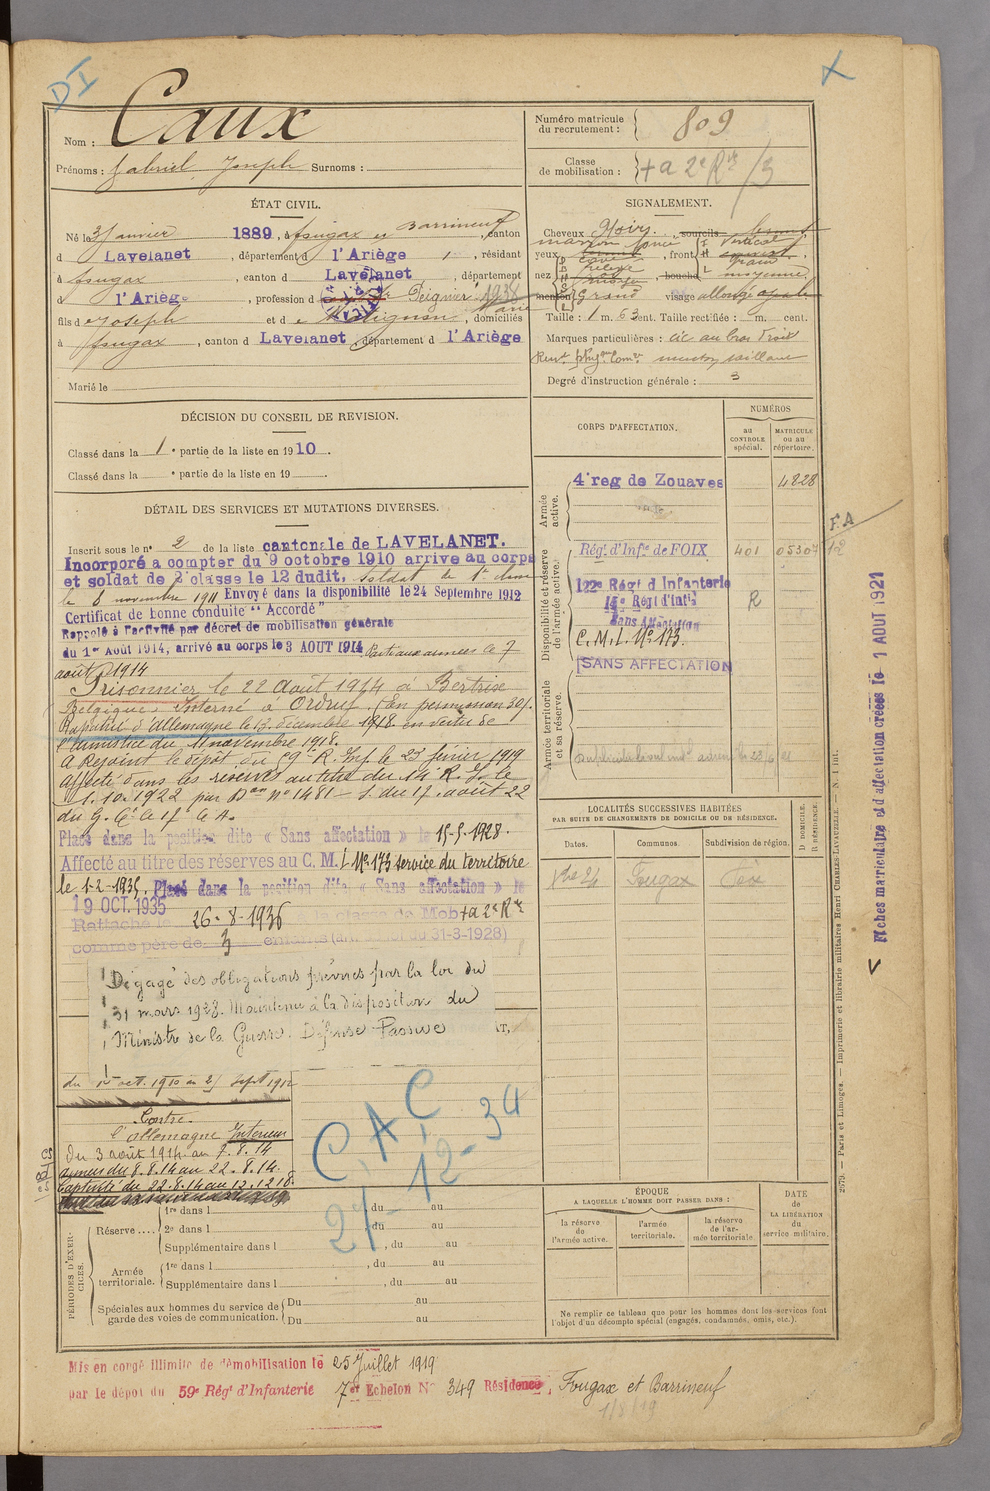 DI
X
Nom : Caux
Prénoms : Gabriel Joseph Surnoms :
Numéro matricule du recrutement : 809
Classe de mobilisation : + a 2e Rve /3
ÉTAT CIVIL.
Né le 3 Janvier 1889, à Fougax et Barrineuf, canton
d Lavelanet, département d l'Ariège, résidant
à Fougax, canton d Lavelanet, département
d l'Ariège, profession d Peignier 1938
fils de Joseph et de Marie, domiciliés
à Fougax, canton d Lavelanet, département d l'Ariège
Marié le
SIGNALEMENT.
Cheveux Noirs. sourcils
yeux marron foncé, front Vertical
nez, bouche moyenne
menton Grand visage allongé ovale
Taille : 1 m. 63 cent. Taille rectifiée : m. cent.
Marques particulières : cic au bras droit
menton saillant
Degré d'instruction générale : 3
DÉCISION DU CONSEIL DE REVISION.
Classé dans la 1e partie de la liste en 1910.
Classé dans la e partie de la liste en 19
DÉTAIL DES SERVICES ET MUTATIONS DIVERSES.
Inscrit sous le n° 2 de la liste cantonale de LAVELANET.
Incorporé a compter du 9 octobre 1910 arrive au corps
et soldat de 2e classe le 12 dudit. Soldat de 1e classe
le 8 novembre 1911 Envoyé dans la disponibilité le 24 Septembre 1912
Certificat de bonne conduite "Accordé"
Rappelé à l'activité par décret de mobilisation générale
du 1er Août 1914, arrivé au corps le 3 AOUT 1914 Parti aux armées le 7
août 1914
Prisonnier le 22 Août 1914 à Bertrix
Belgique. Interné à Ordruf (En permission 30j.
Rapatrié d'Allemagne le 13 décembre 1918 en vertu de
l'amnistie du 11 novembre 1918.
A Rejoint le dépôt du 59e R. Inf. le 23 février 1919
Affecté dans les réserves au titre du 14e R. I. le
1.10.1922 par Don n° 1481 - S. du 17 août 22
du G. Ct le 17e C.A.
Placé dans la position dite « Sans affectation » le 15-5-1928.
Affecté au titre des réserves au C. M. I. N° 173 service du territoire
le 1-2-1935. Placé dans la position dite « Sans affectation » le
19 OCT. 1935
Rattaché le 26-8-1936 à la classe de Mob + a 2e Rve
comme père de 3 enfants (art. loi du 31-3-1928)
Dégagé des obligations prévues par la loi du
31 mars 1928. Maintenu à la disposition du
Ministre de la Guerre. Défense Passive
du 10 oct. 1910 au 24 Sept 1912
Contre
l'Allemagne Intérieur
Du 3 août 1914 au 7.8.14
armées du 8.8.14 au 22.8.14
Captivité du 22.8.14 au 12.12.18
C.A.C
27-12-34
PÉRIODES D'EXERCICES.
Réserve....
1re dans l , du au
2e dans l , du au
Supplémentaire dans l , du au
Armée territoriale.
1re dans l , du au
Supplémentaire dans l , du au
Spéciales aux hommes du service de garde des voies de communication.
Du au
Du au
CORPS D'AFFECTATION.
NUMÉROS
au CONTROLE spécial.
MATRICULE ou au répertoire.
Armée active.
4e reg de Zouaves 4828
Disponibilité et réserve de l'armée active.
Régt d'Infie de FOIX 401 05307
122e Régt d'Infanterie
14e Régt d'Infie R
Sans Affectation
C.M.I. N° 173.
SANS AFFECTATION
Armée territoriale et sa réserve.
F.A
12
Fiches matriculaire et d'affectation créées le 1 AOUT 1921
LOCALITÉS SUCCESSIVES HABITÉES
PAR SUITE DE CHANGEMENTS DE DOMICILE OU DE RÉSIDENCE.
Dates. Communes. Subdivision de région. D DOMICILE. R RÉSIDENCE.
Fougax Foix
ÉPOQUE
A LAQUELLE L'HOMME DOIT PASSER DANS :
la réserve de l'armée active.
l'armée territoriale.
la réserve de l'armée territoriale
DATE de LA LIBÉRATION du service militaire.
Ne remplir ce tableau que pour les hommes dont les services font
l'objet d'un décompte spécial (engagés, condamnés, omis, etc.).
2679. — Paris et Limoges. — Imprimerie et librairie militaires Henri CHARLES-LAVAUZELLE. — N. 1 int.
Mis en congé illimité de démobilisation le 25 Juillet 1919
par le dépot du 59e Régt d'Infanterie 7er Echelon N° 349 Résidence, Fougax et Barrineuf
1/8/19